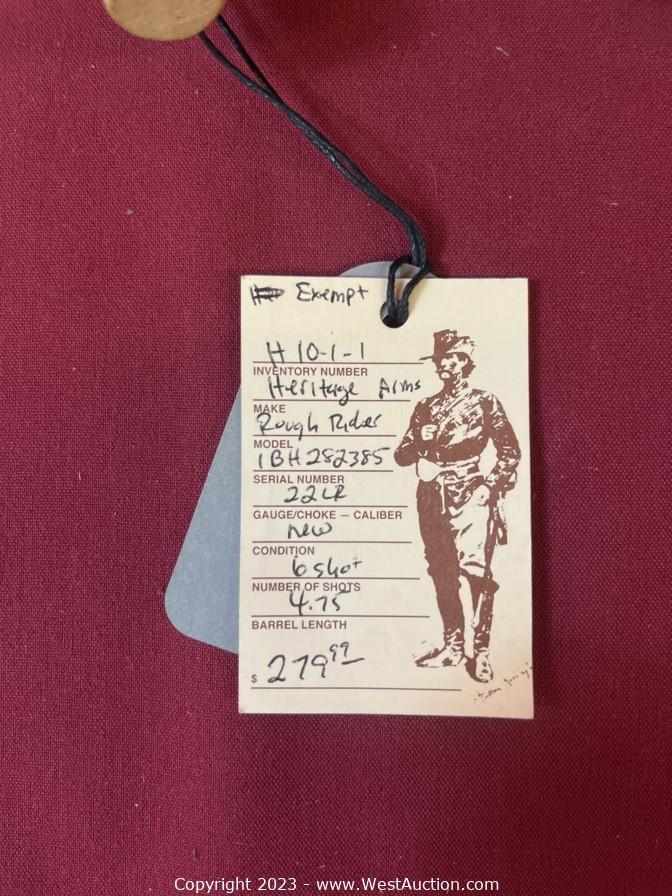 Exempt
H 10-1-1
INVENTORY NUMBER
Heritage Arms
MAKE
Rough Rider
MODEL
1BH282385
SERIAL NUMBER
22LR
GAUGE/CHOKE — CALIBER
new
CONDITION
6 shot
NUMBER OF SHOTS
4.75
BARREL LENGTH
$ 279⁹⁹
Copyright 2023 - www.WestAuction.com